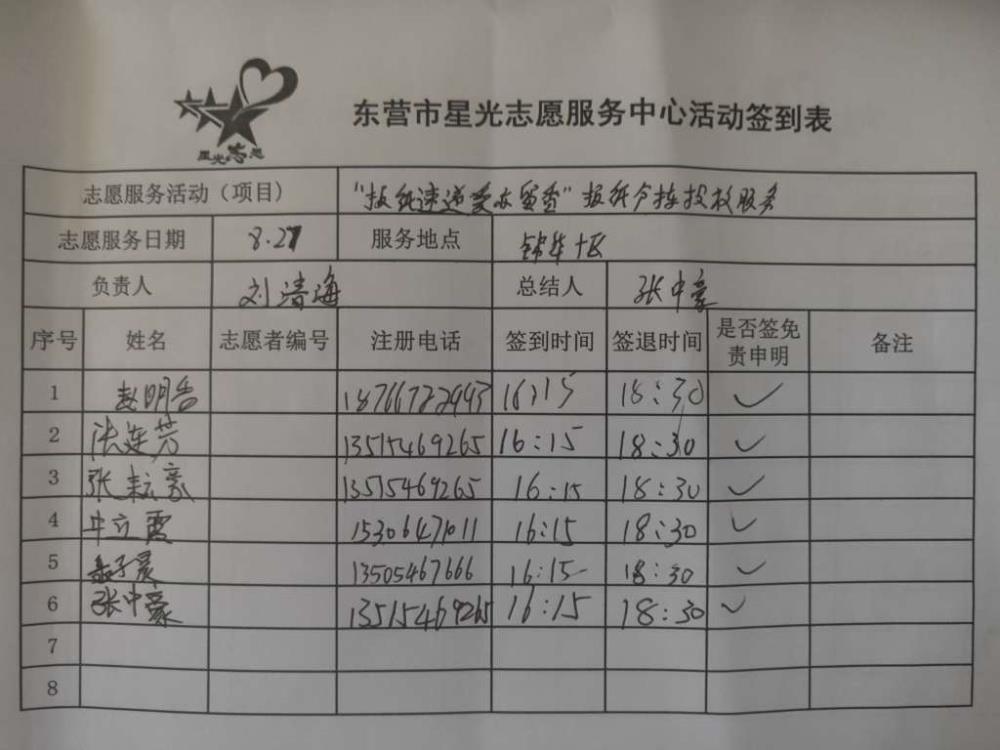 星光志愿
东营市星光志愿服务中心活动签到表
志愿服务活动（项目） "报纸速递爱在留香"报纸分拣投放服务
志愿服务日期 8.27 服务地点 锦华十区
负责人 刘清海 总结人 张中豪
序号 姓名 志愿者编号 注册电话 签到时间 签退时间 是否签免责申明 备注
1 赵明 18766722993 16:15 18:30 ✓
2 张连芳 13515469265 16:15 18:30 ✓
3 张耘豪 13515469265 16:15 18:30 ✓
4 立霞 15306471011 16:15 18:30 ✓
5 13505467666 16:15 18:30 ✓
6 张中豪 13515469265 16:15 18:30 ✓
7
8